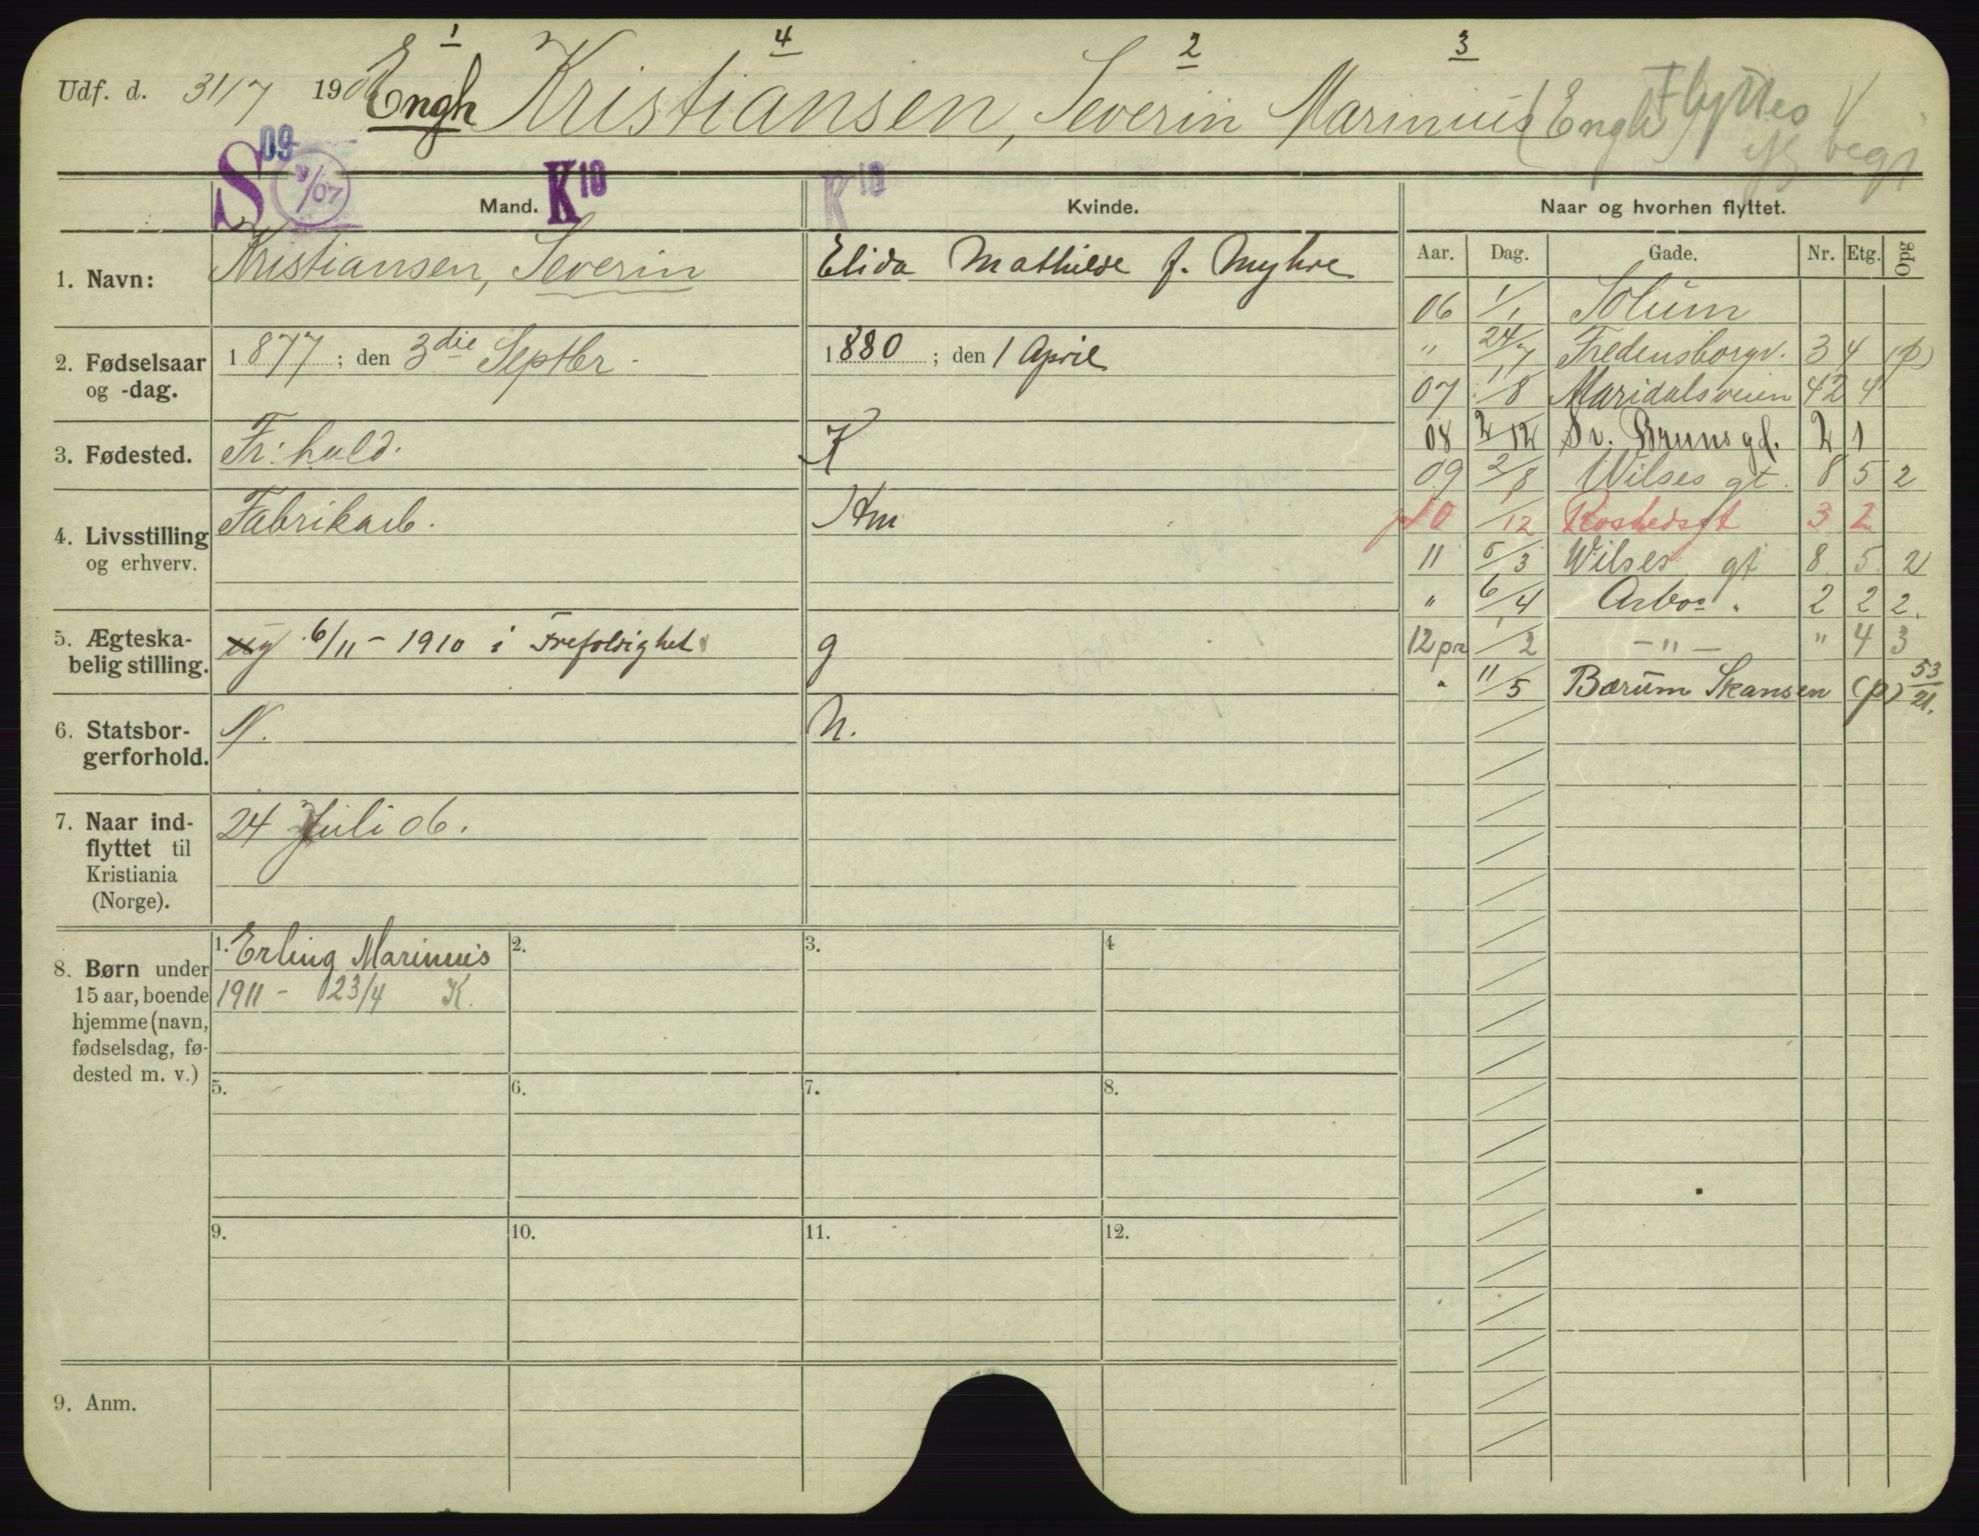 1 4 2 3
Udf. d. 31/7 1906 Engh Kristiansen, Severin Marinius (Engh) Flyttes
09
S /07 K10 K10
Mand. Kvinde. Naar og hvorhen flyttet.
Aar. Dag. Gade. Nr. Etg. Opg
1. Navn: Kristiansen, Severin Elida Mathilde f. Myhre
2. Fødselsaar og -dag. 1877; den 3die Septbr. 1880; den 1 April
3. Fødested. Fr:hald. K
4. Livsstilling og erhverv. Fabrikarb. Hm
5. Ægteskabelig stilling. g 6/11 - 1910 i Trefoldighet g
6. Statsborgerforhold. N. N.
7. Naar indflyttet til Kristiania (Norge). 24 Juli 06.
8. Børn under 15 aar, boende hjemme (navn, fødselsdag, fødested m. v.)
1. Erling Marinius 2. 3. 4
1911 - 23/4 K.
5. 6. 7. 8.
9. 10. 11. 12.
9. Anm.
06 1/1 Solum
" 24/7 Fredensborgv. 34 (p)
07 1/8 Maridalsveien 42 4
08 2/12 Sv. Brunsgd. 2 1
09 2/8 Wilses gt. 8 5 2
10 1/12 Rostedsgt 3 2
11 5/3 Wilses gt 8 5 2
" 6/4 Arbos " 2 2 2.
12 pr 1/2 - " - " 4 3
" 11/5 Bærum Skansen (p) 53/21.